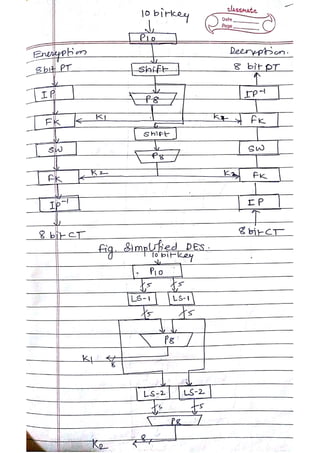 classmate
Date
Page
10 bit key
P10
Encryption
Decryption.
8 bit PT
Shift
8 bit PT
IP
P8
IP-1
FK
K1
K1
FK
Shift
SW
SW
P8
FK
K2
K2
FK
IP-1
IP
8 bit CT
8 bit CT
Fig. Simplified DES.
10 bit key
P10
5
5
LS-1
LS-1
5
5
P8
K1
8
LS-2
LS-2
5
5
P8
8
K2